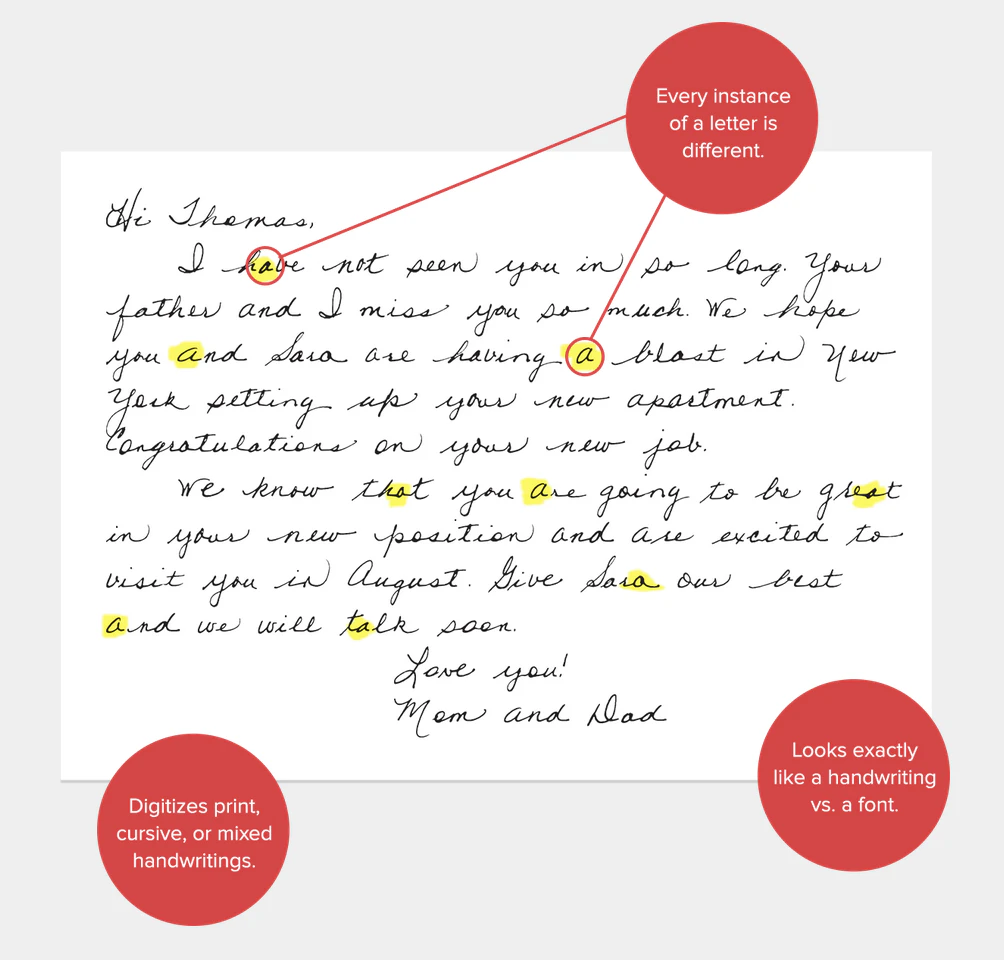 Every instance
of a letter is
different.
Hi Thomas,
I have not seen you in so long. Your
father and I miss you so much. We hope
you and Sara are having a blast in New
York setting up your new apartment.
Congratulations on your new job.
We know that you are going to be great
in your new position and are excited to
visit you in August. Give Sara our best
and we will talk soon.
Love you!
Mom and Dad
Digitizes print,
cursive, or mixed
handwritings.
Looks exactly
like a handwriting
vs. a font.